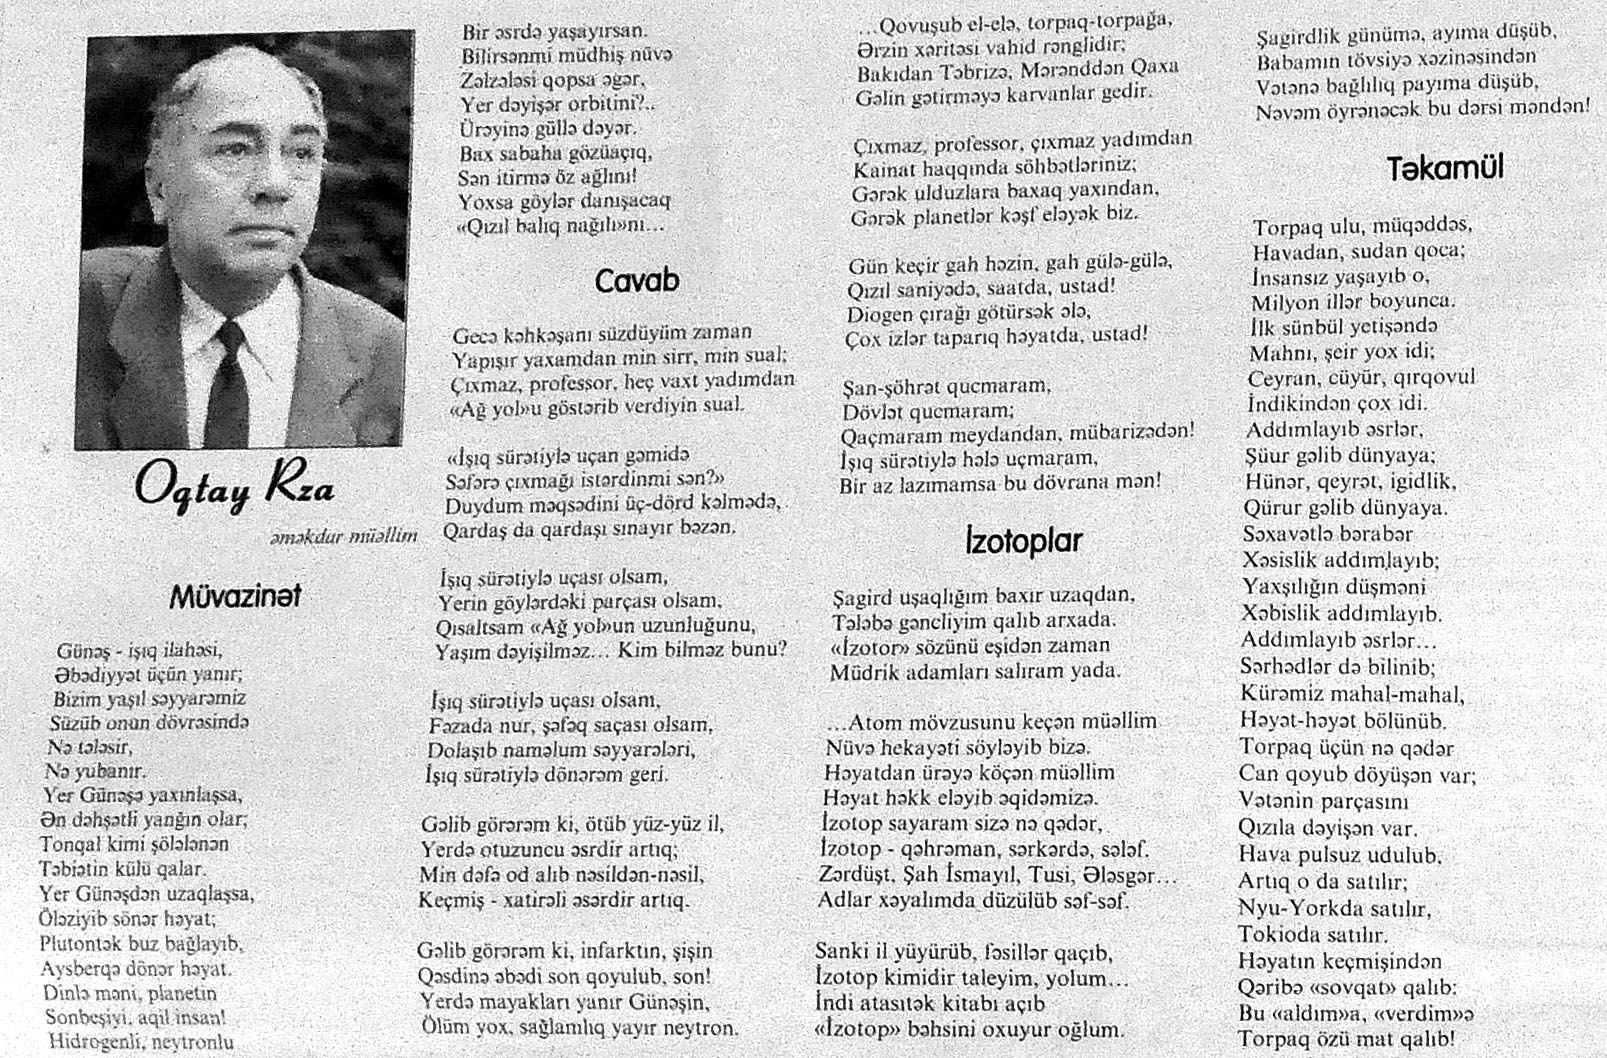 Oqtay Rza
əməkdar müəllim
Müvazinət
Günəş - işıq ilahəsi,
Əbədiyyət üçün yanır;
Bizim yaşıl səyyarəmiz
Süzüb onun dövrəsində
Nə tələsir,
Nə yubanır.
Yer Günəşə yaxınlaşsa,
Ən dəhşətli yanğın olar;
Tonqal kimi şölələnən
Təbiətin külü qalar.
Yer Günəşdən uzaqlaşsa,
Öləziyib sönər həyat;
Plutontək buz bağlayıb,
Aysberqə dönər həyat.
Dinlə məni, planetin
Sonbeşiyi, aqil insan!
Hidrogenli, neytronlu
Bir əsrdə yaşayırsan.
Bilirsənmi müdhiş nüvə
Zəlzələsi qopsa əgər,
Yer dəyişər orbitini?..
Ürəyinə güllə dəyər.
Bax sabaha gözüaçıq,
Sən itirmə öz ağlını!
Yoxsa göylər danışacaq
«Qızıl balıq nağılı»nı...
Cavab
Gecə kəhkəşanı süzdüyüm zaman
Yapışır yaxamdan min sirr, min sual;
Çıxmaz, professor, heç vaxt yadımdan
«Ağ yol»u göstərib verdiyin sual.
«İşıq sürətiylə uçan gəmidə
Səfərə çıxmağı istərdinmi sən?»
Duydum məqsədini üç-dörd kəlmədə,
Qardaş da qardaşı sınayır bəzən.
İşıq sürətiylə uçası olsam,
Yerin göylərdəki parçası olsam,
Qısaltsam «Ağ yol»un uzunluğunu,
Yaşım dəyişilməz... Kim bilməz bunu?
İşıq sürətiylə uçası olsam,
Fəzada nur, şəfəq saçası olsam,
Dolaşıb naməlum səyyarələri,
İşıq sürətiylə dönərəm geri.
Gəlib görərəm ki, ötüb yüz-yüz il,
Yerdə otuzuncu əsrdir artıq;
Min dəfə od alıb nəsildən-nəsil,
Keçmiş - xatirəli əsərdir artıq.
Gəlib görərəm ki, infarktın, şişin
Qəsdinə əbədi son qoyulub, son!
Yerdə mayakları yanır Günəşin,
Ölüm yox, sağlamlıq yayır neytron.
...Qovuşub el-elə, torpaq-torpağa,
Ərzin xəritəsi vahid rənglidir;
Bakıdan Təbrizə, Mərənddən Qaxa
Gəlin gətirməyə karvanlar gedir.
Çıxmaz, professor, çıxmaz yadımdan
Kainat haqqında söhbətləriniz;
Gərək ulduzlara baxaq yaxından,
Gərək planetlər kəşf eləyək biz.
Gün keçir gah həzin, gah gülə-gülə,
Qızıl saniyədə, saatda, ustad!
Diogen çırağı götürsək ələ,
Çox izlər taparıq həyatda, ustad!
Şan-şöhrət qucmaram,
Dövlət qucmaram;
Qaçmaram meydandan, mübarizədən!
İşıq sürətiylə hələ uçmaram,
Bir az lazımamsa bu dövrana mən!
İzotoplar
Şagird uşaqlığım baxır uzaqdan,
Tələbə gəncliyim qalıb arxada.
«İzotop» sözünü eşidən zaman
Müdrik adamları salıram yada.
...Atom mövzusunu keçən müəllim
Nüvə hekayəti söyləyib bizə.
Həyatdan ürəyə köçən müəllim
Həyat həkk eləyib əqidəmizə.
İzotop sayaram sizə nə qədər,
İzotop - qəhrəman, sərkərdə, sələf.
Zərdüşt, Şah İsmayıl, Tusi, Ələsgər...
Adlar xəyalımda düzülüb səf-səf.
Sanki il yüyürüb, fəsillər qaçıb,
İzotop kimidir taleyim, yolum...
İndi atasıtək kitabı açıb
«İzotop» bəhsini oxuyur oğlum.
Şagirdlik günümə, ayıma düşüb,
Babamın tövsiyə xəzinəsindən
Vətənə bağlılıq payıma düşüb,
Nəvəm öyrənəcək bu dərsi məndən!
Təkamül
Torpaq ulu, müqəddəs,
Havadan, sudan qoca;
İnsansız yaşayıb o,
Milyon illər boyunca.
İlk sünbül yetişəndə
Mahnı, şeir yox idi;
Ceyran, cüyür, qırqovul
İndikindən çox idi.
Addımlayıb əsrlər,
Şüur gəlib dünyaya;
Hünər, qeyrət, igidlik,
Qürur gəlib dünyaya.
Səxavətlə bərabər
Xəsislik addımlayıb;
Yaxşılığın düşməni
Xəbislik addımlayıb.
Addımlayıb əsrlər...
Sərhədlər də bilinib;
Kürəmiz mahal-mahal,
Həyət-həyət bölünüb.
Torpaq üçün nə qədər
Can qoyub döyüşən var;
Vətənin parçasını
Qızıla dəyişən var.
Hava pulsuz udulub,
Artıq o da satılır;
Nyu-Yorkda satılır,
Tokioda satılır.
Həyatın keçmişindən
Qəribə «sovqat» qalıb:
Bu «aldım»a, «verdim»ə
Torpaq özü mat qalıb!